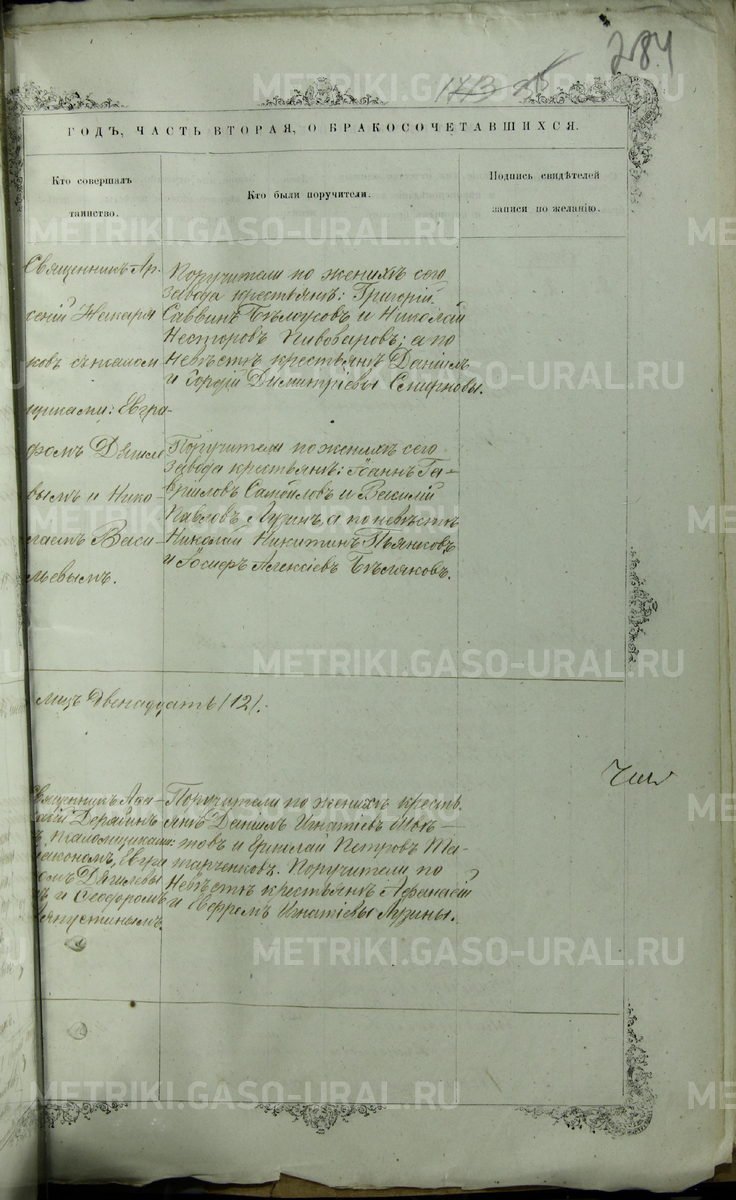 284
ГОДЪ, ЧАСТЬ ВТОРАЯ, О БРАКОСОЧЕТАВШИХСЯ.
Кто совершалъ
таинство.
Кто были поручители.
Подпись свидѣтелей
записи по желанію.
Священникъ Ар-
сеній
ковъ съ псалом
щиками: Евгра-
фомъ Дягиле
вымъ и Нико-
лаемъ Васи-
льевымъ.
Поручители по женихѣ сего
завода крестьяне: Григорій
Саввинъ Бѣлоусовъ и Николай
Несторовъ Пивоваровъ; а по
невѣстѣ крестьяне Даніилъ
и Гордій Димитріевы Смирновы.
Поручители по женихѣ сего
завода крестьяне: Іоаннъ Га-
вриловъ Самойловъ и Василій
Павловъ Лузинъ, а по невѣстѣ
Николай Никитинъ Пьянковъ
и Іосифъ Алексіевъ Бѣляковъ.
лицъ двенадцать (12).
священникъ
Дерябинъ
псаломщиками:
Евгра
омъ Дягилевы
ъ и Ѳеодоромъ
апустинымъ.
Поручители по женихѣ кресть
яне Даніилъ Игнатіевъ
товъ и Петровъ Та-
тарченковъ. Поручители по
невѣстѣ крестьяне Афанасій
и Ефремъ Игнатіевы Лузины.
METRIKI.GASO-URAL.RU